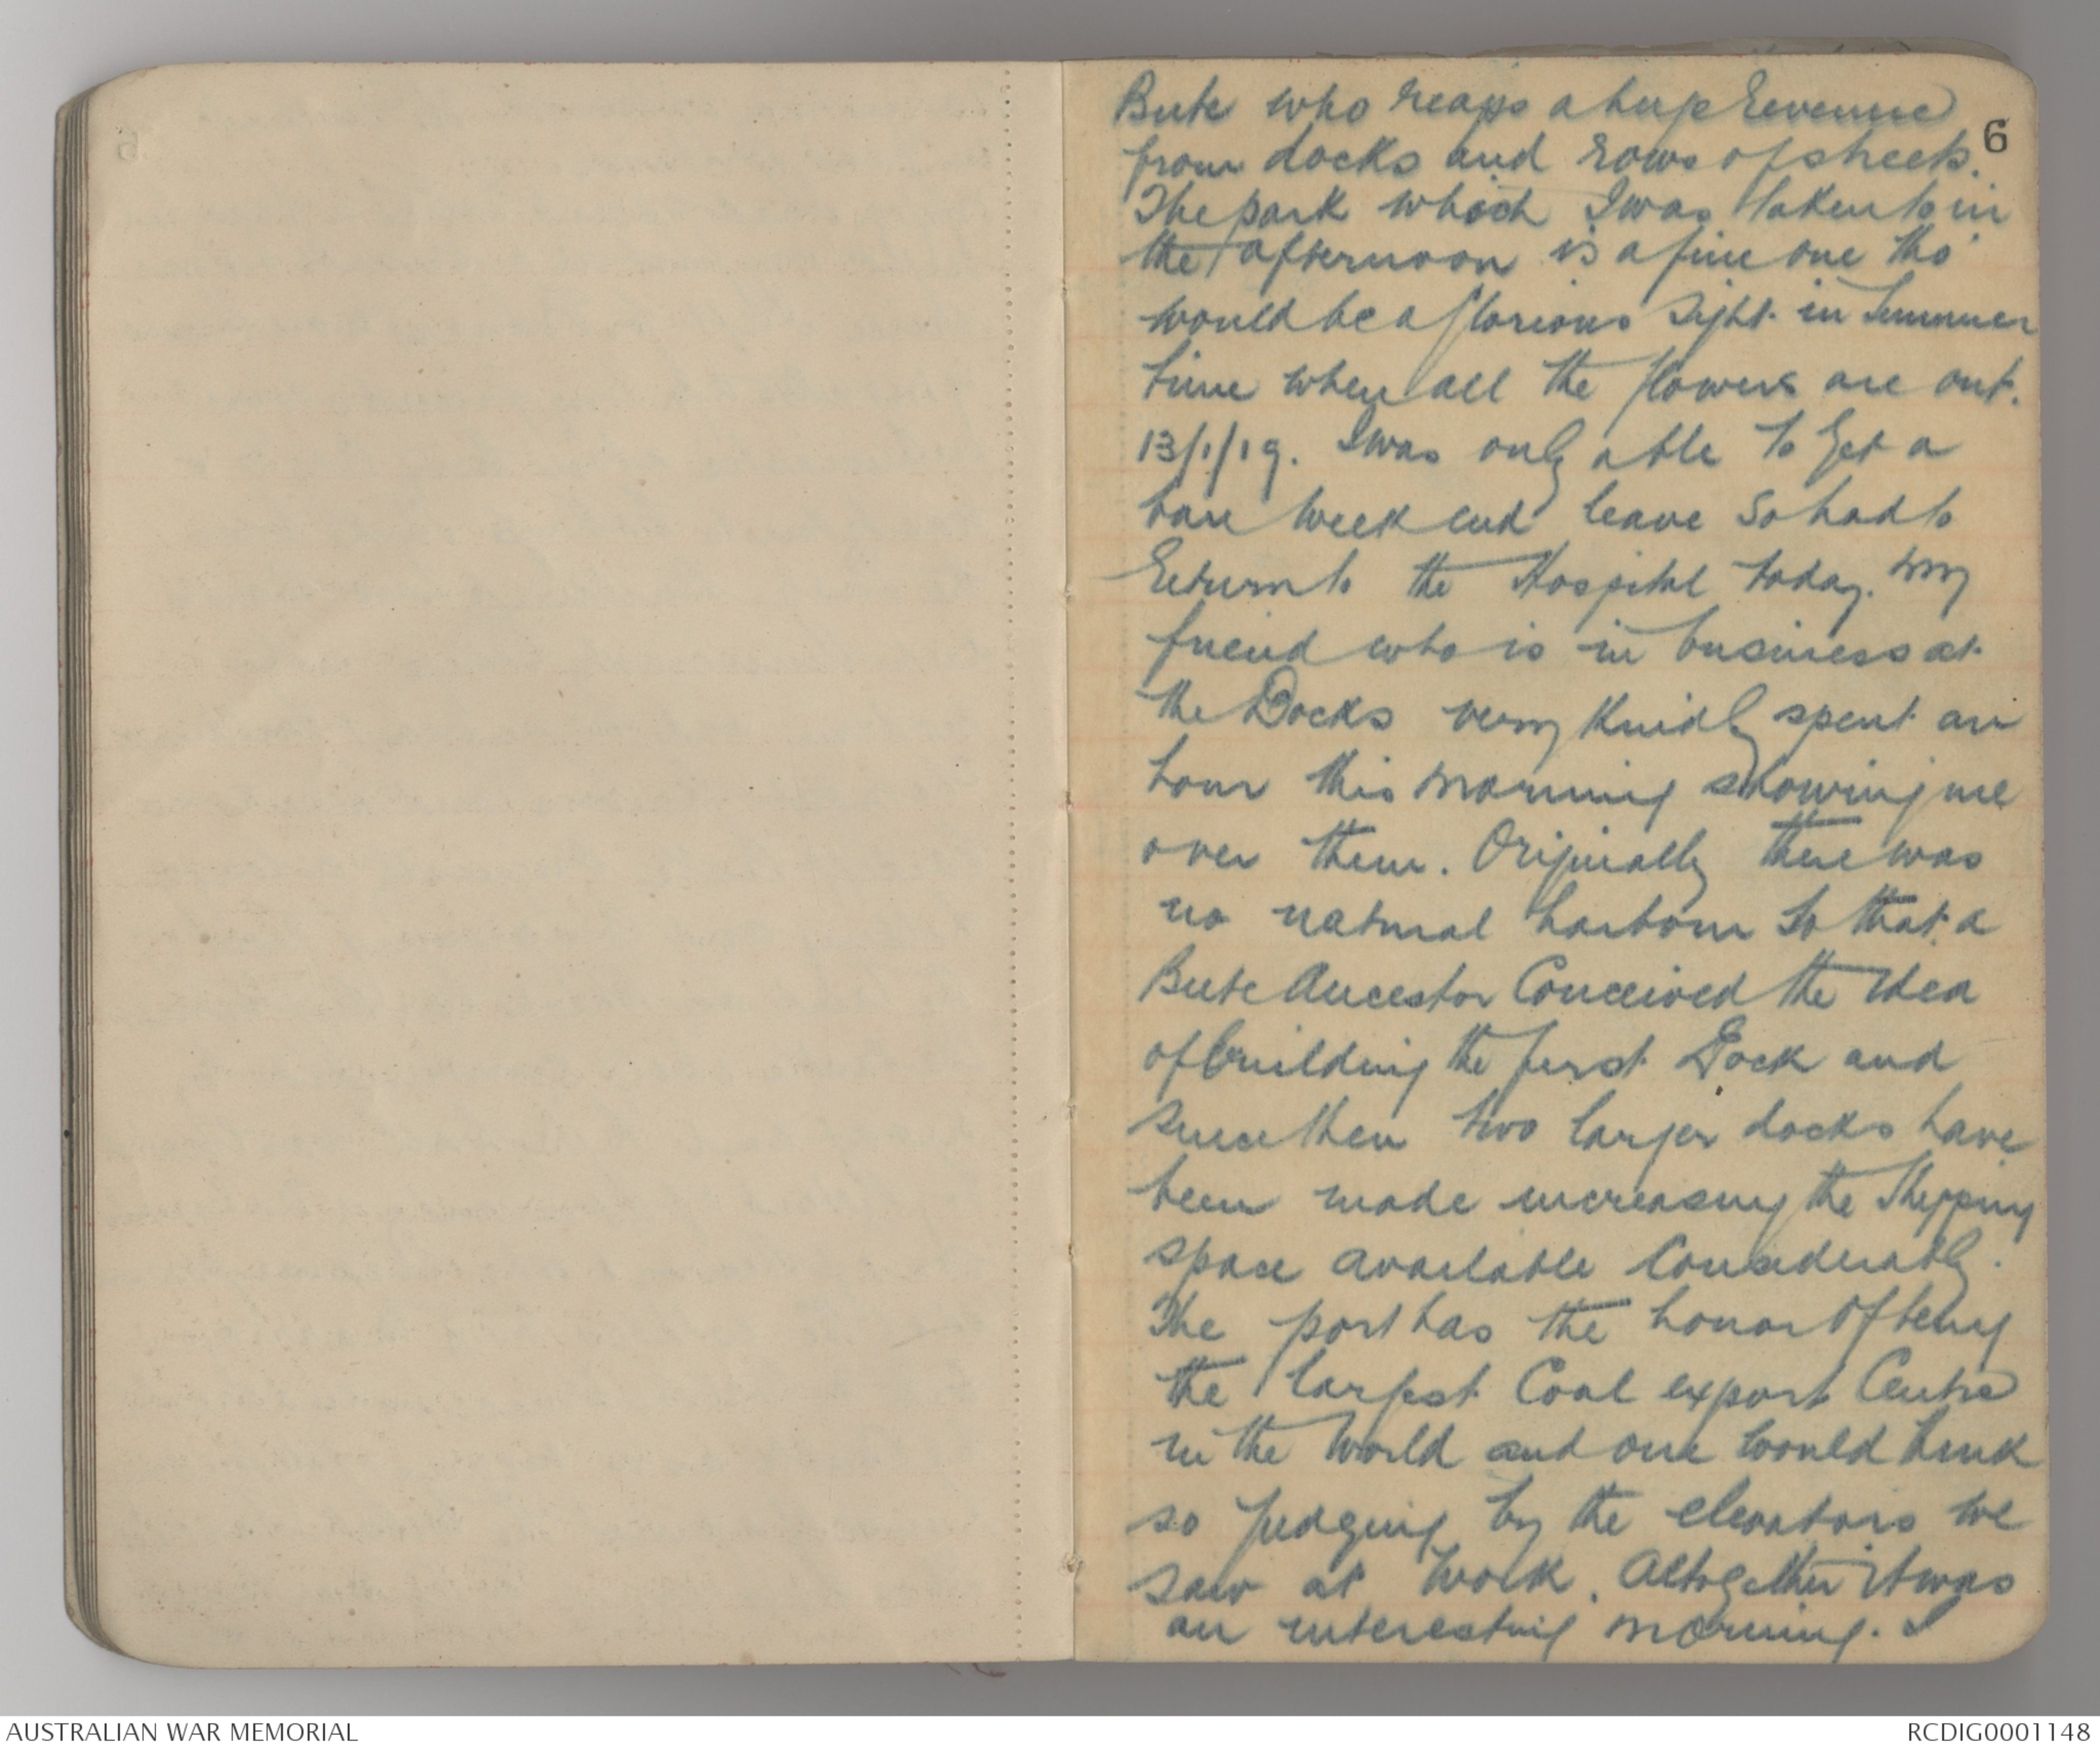 Bute who reaps a huge revenue
6
from docks and rows of streets.
The park which I was taken to in
the afternoon is a fine one tho'
would be a glorious sight in summer
time when all the flowers are out.
13/1/19. I was only able to get a
bare week end leave so had to
return to the Hospital today. My
friend who is in business at
the Docks very kindly spent an
hour this morning showing me
over them. Originally there was
no natural harbour so that a
Bute Ancestor Conceived the idea
of building the first Dock and
since then two larger docks have
been made increasing the Shipping
space available Considerably.
The port has the honor of being
the largest Coal export Centre
in the World and one would think
so judging by the elevators we
saw at work. Altogether it was
an interesting morning. I
AUSTRALIAN WAR MEMORIAL
RCDIG0001148